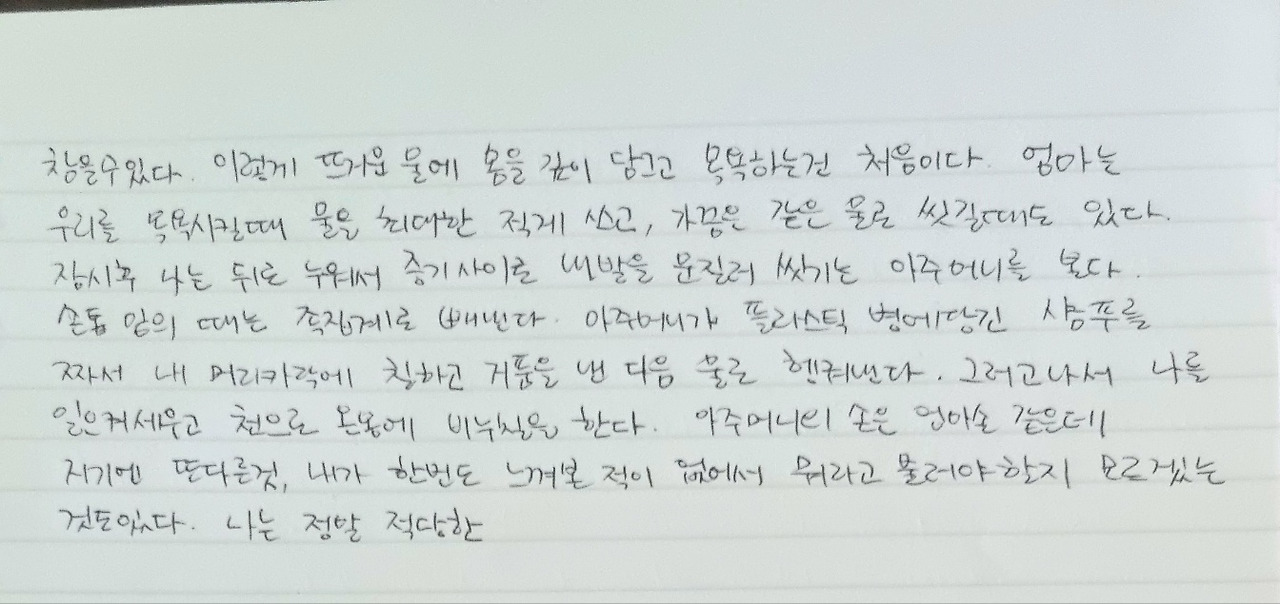 참을수있다. 이렇게 뜨거운 물에 몸을 깊이 담그고 목욕하는건 처음이다. 엄마는
우리를 목욕시킬때 물을 최대한 적게 쓰고, 가끔은 같은 물로 씻길때도 있다.
잠시후 나는 뒤로 누워서 증기사이로 내발을 문질러 씻기는 아주머니를 본다.
손톱 밑의 때는 족집게로 빼낸다. 아주머니가 플라스틱 병에담긴 샴푸를
짜서 내 머리카락에 칠하고 거품을 낸 다음 물로 헹궈낸다. 그러고나서 나를
일으켜세우고 천으로 온몸에 비누칠을 한다. 아주머니의 손은 엄마손 같은데
저기엔 또다른것, 내가 한번도 느껴본 적이 없어서 뭐라고 불러야할지 모르겠는
것도있다. 나는 정말 적당한